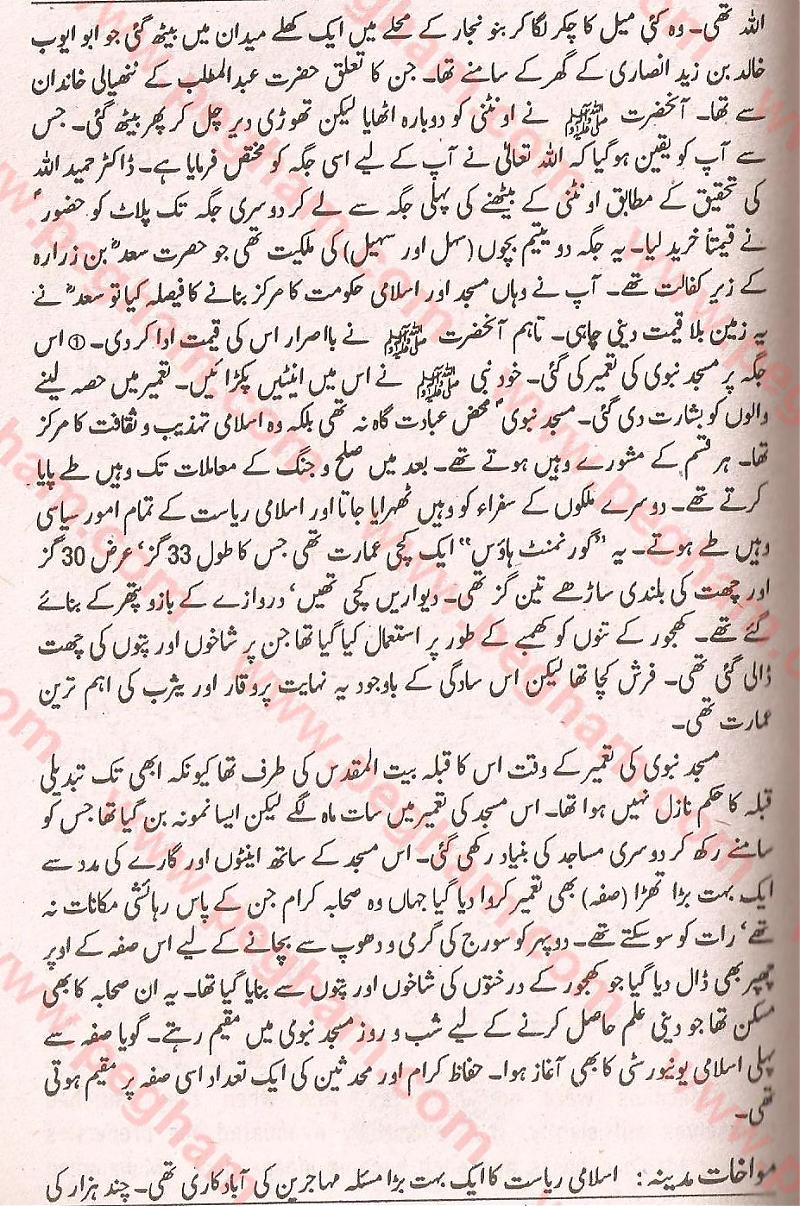 اللہ تھی۔ وہ کئی میل کا چکر لگا کر بنو نجار کے محلے میں ایک کھلے میدان میں بیٹھ گئی جو ابو ایوب
خالد بن زید انصاری کے گھر کے سامنے تھا۔ جن کا تعلق حضرت عبدالمطلب کے ننھیالی خاندان
سے تھا۔ آنحضرت ﷺ نے اونٹنی کو دوبارہ اٹھایا لیکن تھوڑی دیر چل کر پھر بیٹھ گئی۔ جس
سے آپ کو یقین ہوگیا کہ اللہ تعالیٰ نے آپ کے لیے اسی جگہ کو مختص فرمایا ہے۔ ڈاکٹر حمید اللہ
کی تحقیق کے مطابق اونٹنی کے بیٹھنے کی پہلی جگہ سے لے کر دوسری جگہ تک پلاٹ کو حضورؐ
نے قیمتاً خرید لیا۔ یہ جگہ دو یتیم بچوں (سہل اور سہیل) کی ملکیت تھی جو حضرت سعدؓ بن زرارہ
کے زیر کفالت تھے۔ آپ نے وہاں مسجد اور اسلامی حکومت کا مرکز بنانے کا فیصلہ کیا تو سعدؓ نے
یہ زمین بلا قیمت دینی چاہی۔ تاہم آنحضرت ﷺ نے بااصرار اس کی قیمت ادا کر دی۔ ① اس
جگہ پر مسجد نبوی کی تعمیر کی گئی۔ خود نبی ﷺ نے اس میں اینٹیں پکڑائیں۔ تعمیر میں حصہ لینے
والوں کو بشارت دی گئی۔ مسجد نبویؐ محض عبادت گاہ نہ تھی بلکہ وہ اسلامی تہذیب و ثقافت کا مرکز
تھا۔ ہر قسم کے مشورے وہیں ہوتے تھے۔ بعد میں صلح و جنگ کے معاملات تک وہیں طے پایا
کرتے تھے۔ دوسرے ملکوں کے سفراء کو وہیں ٹھہرایا جاتا اور اسلامی ریاست کے تمام امور سیاسی
وہیں طے ہوتے۔ یہ "گورنمنٹ ہاؤس" ایک کچی عمارت تھی جس کا طول 33 گز، عرض 30 گز
اور چھت کی بلندی ساڑھے تین گز تھی۔ دیواریں کچی تھیں، دروازے کے بازو پتھر کے بنائے
گئے تھے۔ کھجور کے تنوں کو کھمبے کے طور پر استعمال کیا گیا تھا جن پر شاخوں اور پتوں کی چھت
ڈالی گئی تھی۔ فرش کچا تھا لیکن اس سادگی کے باوجود یہ نہایت پروقار اور یثرب کی اہم ترین
عمارت تھی۔
مسجد نبوی کی تعمیر کے وقت اس کا قبلہ بیت المقدس کی طرف تھا کیونکہ ابھی تک تبدیلی
قبلہ کا حکم نازل نہیں ہوا تھا۔ اس مسجد کی تعمیر میں سات ماہ لگے لیکن ایسا نمونہ بن گیا تھا جس کو
سامنے رکھ کر دوسری مساجد کی بنیاد رکھی گئی۔ اس مسجد کے ساتھ اینٹوں اور گارے کی مدد سے
ایک بہت بڑا تھڑا (صفہ) بھی تعمیر کروا دیا گیا جہاں وہ صحابہ کرام جن کے پاس رہائشی مکانات نہ
تھے، رات کو سو سکتے تھے۔ دوپہر کو سورج کی گرمی و دھوپ سے بچانے کے لیے اس صفہ کے اوپر
چھپر بھی ڈال دیا گیا جو کھجور کے درختوں کی شاخوں اور پتوں سے بنایا گیا تھا۔ یہ ان صحابہ کا بھی
مسکن تھا جو دینی علم حاصل کرنے کے لیے شب و روز مسجد نبوی میں مقیم رہتے۔ گویا صفہ سے
پہلی اسلامی یونیورسٹی کا بھی آغاز ہوا۔ حفاظ کرام اور محدثین کی ایک تعداد اسی صفہ پر مقیم ہوتی
تھی۔
مواخات مدینہ: اسلامی ریاست کا ایک بہت بڑا مسئلہ مہاجرین کی آبادکاری تھی۔ چند ہزار کی
www.pegham.com